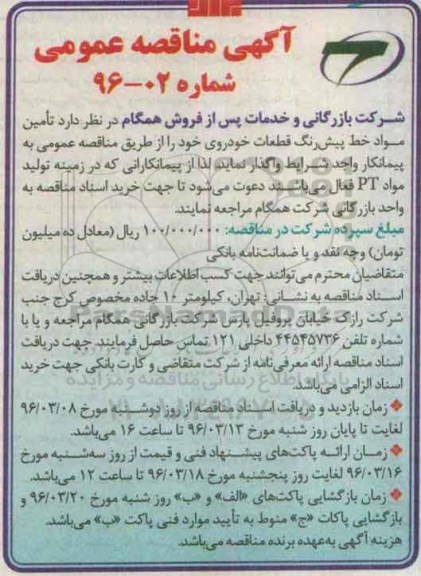 آگهی مناقصه عمومی
شماره ۰۲-۹۶
شرکت بازرگانی و خدمات پس از فروش همگام در نظر دارد تأمین
مواد خط پیش‌رنگ قطعات خودروی خود را از طریق مناقصه عمومی به
پیمانکار واجد شرایط واگذار نماید. لذا از پیمانکارانی که در زمینه تولید
مواد PT فعال می‌باشند دعوت می‌شود تا جهت خرید اسناد مناقصه به
واحد بازرگانی شرکت همگام مراجعه نمایند.
مبلغ سپرده شرکت در مناقصه: ۱۰۰/۰۰۰/۰۰۰ ریال (معادل ده میلیون
تومان) وجه نقد و یا ضمانت‌نامه بانکی
متقاضیان محترم می‌توانند جهت کسب اطلاعات بیشتر و همچنین دریافت
اسناد مناقصه به نشانی: تهران، کیلومتر ۱۰ جاده مخصوص کرج جنب
شرکت رازک خیابان پروفیل پارس شرکت بازرگانی همگام مراجعه و یا با
شماره تلفن ۴۴۵۴۵۷۳۶ داخلی ۱۲۱ تماس حاصل فرمایند. جهت دریافت
اسناد مناقصه ارائه معرفی‌نامه از شرکت متقاضی و کارت بانکی جهت خرید
اسناد الزامی می‌باشد.
زمان بازدید و دریافت اسناد مناقصه از روز دوشنبه مورخ ۹۶/۰۳/۰۸
لغایت تا پایان روز شنبه مورخ ۹۶/۰۳/۱۳ تا ساعت ۱۶ می‌باشد.
زمان ارائه پاکت‌های پیشنهاد فنی و قیمت از روز سه‌شنبه مورخ
۹۶/۰۳/۱۶ لغایت روز پنجشنبه مورخ ۹۶/۰۳/۱۸ تا ساعت ۱۲ می‌باشد.
زمان بازگشایی پاکت‌های «الف» و «ب» روز شنبه مورخ ۹۶/۰۳/۲۰ و
بازگشایی پاکات «ج» منوط به تأیید موارد فنی پاکت «ب» می‌باشد.
هزینه آگهی به‌عهده برنده مناقصه می‌باشد.